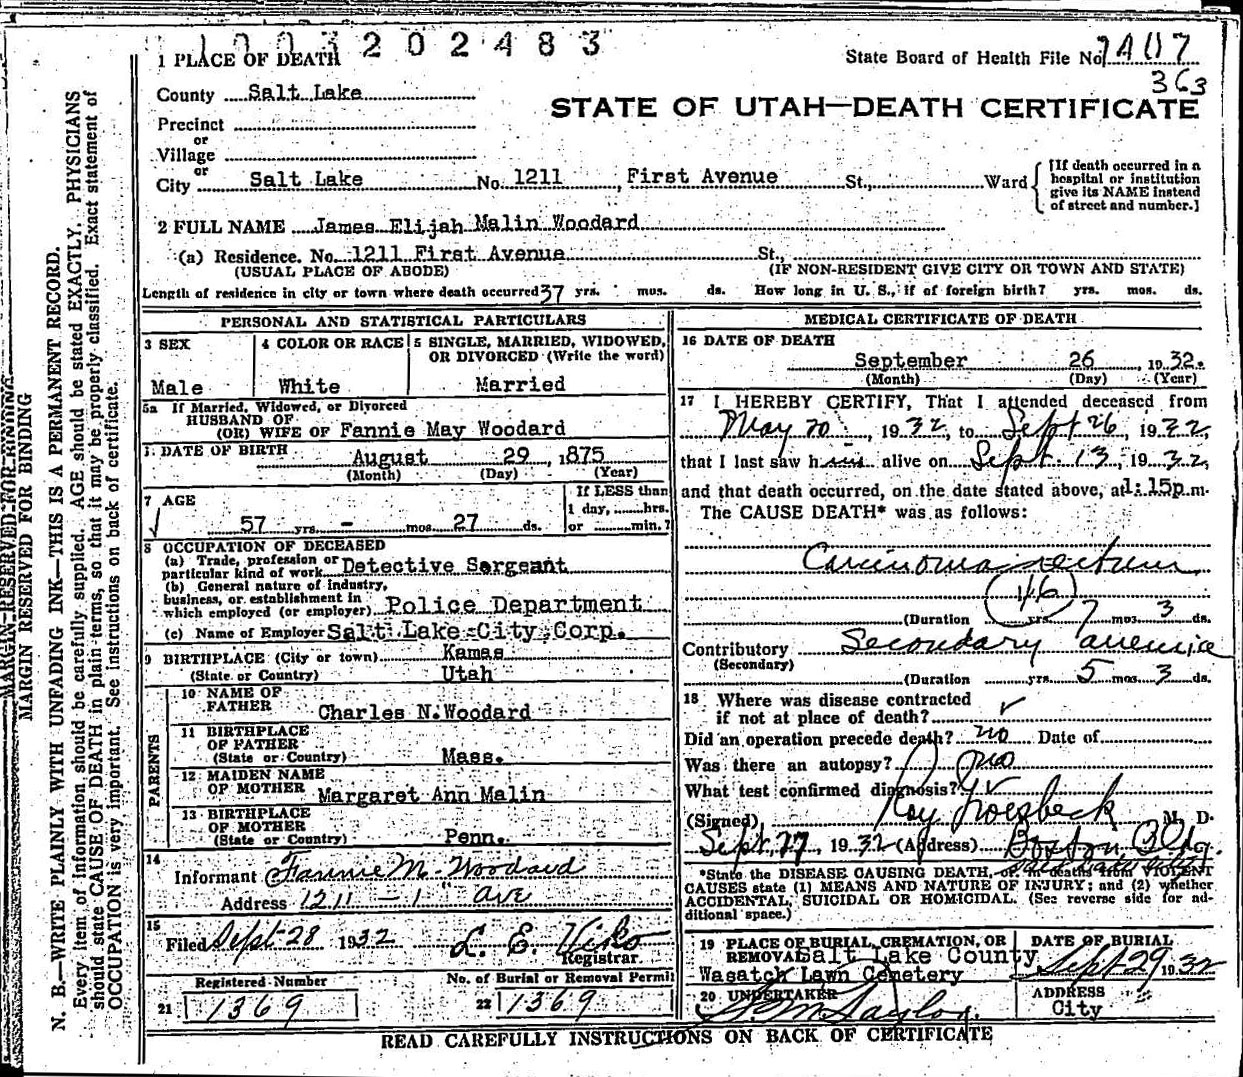 1003202483
1 PLACE OF DEATH
State Board of Health File No
363
County Salt Lake
STATE OF UTAH—DEATH CERTIFICATE
Precinct
or
Village
or
City Salt Lake No. 1211, First Avenue St., Ward
[If death occurred in a
hospital or institution
give its NAME instead
of street and number.]
2 FULL NAME James Elijah Malin Woodard
(a) Residence. No. 1211 First Avenue St.,
(USUAL PLACE OF ABODE) (IF NON-RESIDENT GIVE CITY OR TOWN AND STATE)
Length of residence in city or town where death occurred 37 yrs. mos. ds. How long in U. S., if of foreign birth? yrs. mos. ds.
PERSONAL AND STATISTICAL PARTICULARS
3 SEX 4 COLOR OR RACE 5 SINGLE, MARRIED, WIDOWED,
OR DIVORCED (Write the word)
Male White Married
5a If Married, Widowed, or Divorced
HUSBAND OF
(OR) WIFE OF Fannie May Woodard
DATE OF BIRTH
August 29, 1875
(Month) (Day) (Year)
7 AGE
If LESS than
1 day, hrs.
or min.?
57 yrs. - mos. 27 ds.
8 OCCUPATION OF DECEASED
(a) Trade, profession or
particular kind of work Detective Sergeant
(b) General nature of industry,
business, or establishment in
which employed (or employer) Police Department
(c) Name of Employer Salt Lake City Corp.
9 BIRTHPLACE (City or town) Kamas
(State or Country) Utah
PARENTS
10 NAME OF
FATHER Charles N. Woodard
11 BIRTHPLACE
OF FATHER
(State or Country) Mass.
12 MAIDEN NAME
OF MOTHER Margaret Ann Malin
13 BIRTHPLACE
OF MOTHER
(State or Country) Penn.
14
Informant Fannie M. Woodard
Address 1211 - 1" ave
15
Filed Sept 28 1932 L. E. Viko
Registrar.
Registered Number No. of Burial or Removal Permit
21 1369 22 1369
MEDICAL CERTIFICATE OF DEATH
16 DATE OF DEATH
September 26, 1932.
(Month) (Day) (Year)
17 I HEREBY CERTIFY, That I attended deceased from
May 20, 1932, to Sept 26, 1932,
that I last saw him alive on Sept. 13, 1932,
and that death occurred, on the date stated above, at 1:15p.m.
The CAUSE DEATH* was as follows:
Carcinoma rectum
46
(Duration yrs. 7 mos. 3 ds.
Contributory Secondary anemia
(Secondary)
(Duration yrs. 5 mos. 3 ds.
18 Where was disease contracted
if not at place of death?
Did an operation precede death? no Date of
Was there an autopsy? no
What test confirmed diagnosis?
(Signed) Roy Groesbeck M. D.
Sept. 27, 1932 (Address) Boston Bldg.
*State the DISEASE CAUSING DEATH, or in deaths from VIOLENT
CAUSES state (1) MEANS AND NATURE OF INJURY; and (2) whether
ACCIDENTAL, SUICIDAL OR HOMICIDAL. (See reverse side for additional space.)
19 PLACE OF BURIAL, CREMATION, OR
REMOVAL Salt Lake County
Wasatch Lawn Cemetery
DATE OF BURIAL
Sept 29 1932
20 UNDERTAKER
S. M. Taylor
ADDRESS
City
READ CAREFULLY INSTRUCTIONS ON BACK OF CERTIFICATE
MARGIN RESERVED FOR BINDING
MARGIN RESERVED FOR BINDING
N. B.—WRITE PLAINLY WITH UNFADING INK—THIS IS A PERMANENT RECORD.
Every item of information should be carefully supplied. AGE should be stated EXACTLY. PHYSICIANS
should state CAUSE OF DEATH in plain terms, so that it may be properly classified. Exact statement of
OCCUPATION is very important. See instructions on back of certificate.